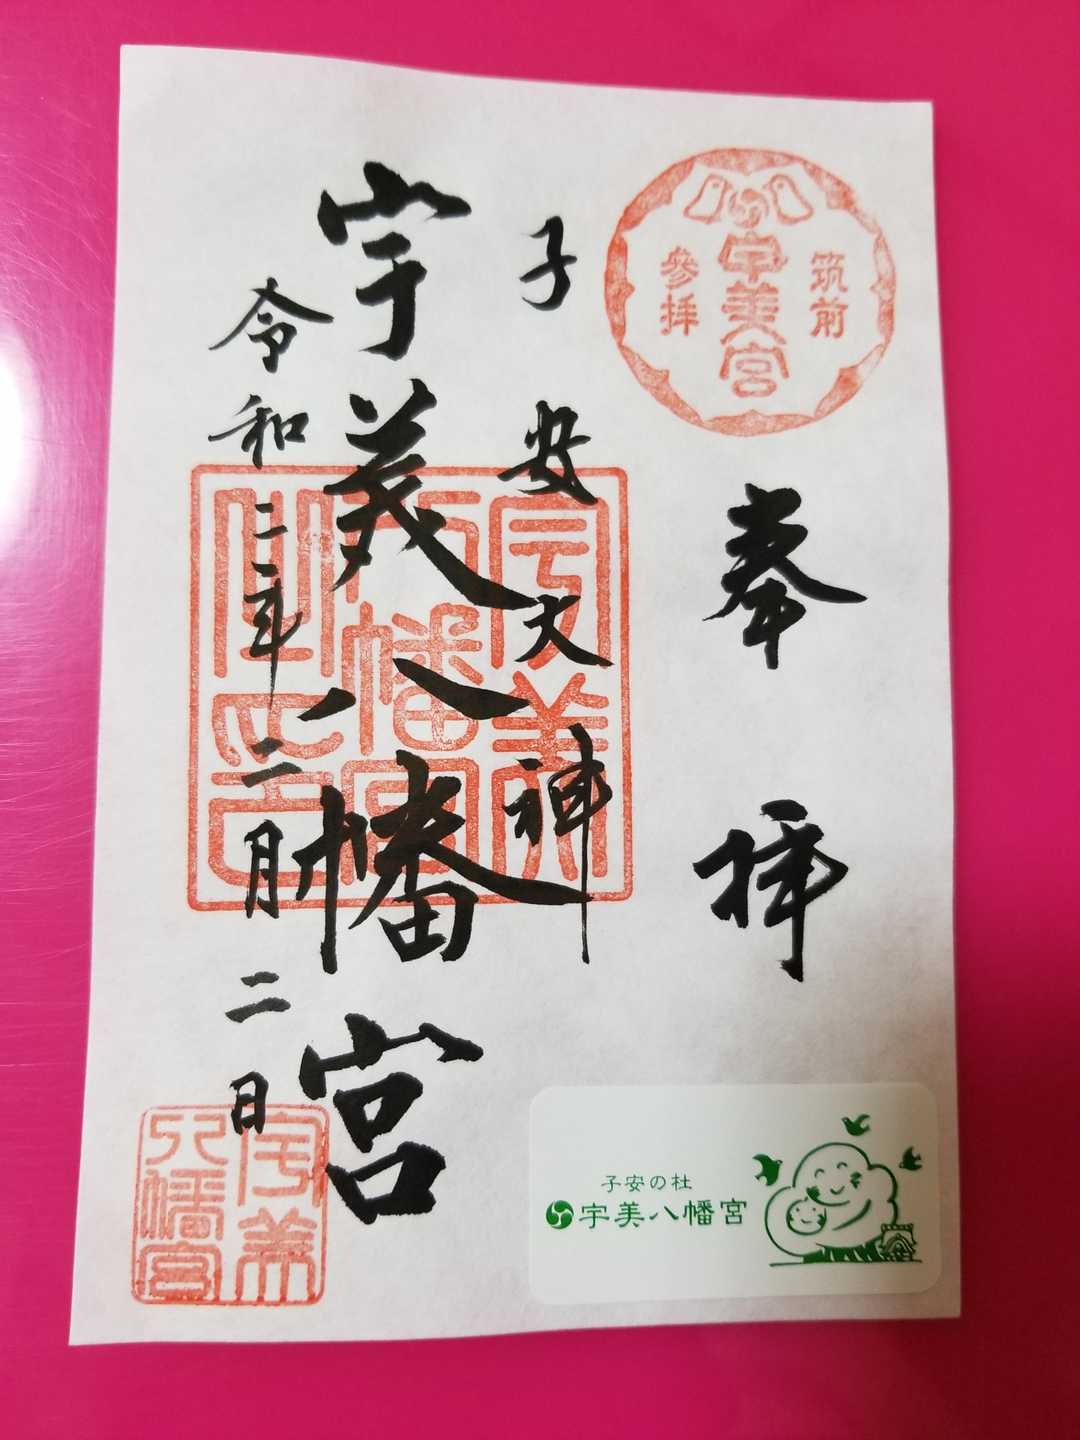 筑前
宇美宮
參拝
奉拝
子安大神
宇美八幡宮
令和二年二月二日
宇美
八幡宮
之印
宇美
八幡宮
子安の杜
宇美八幡宮